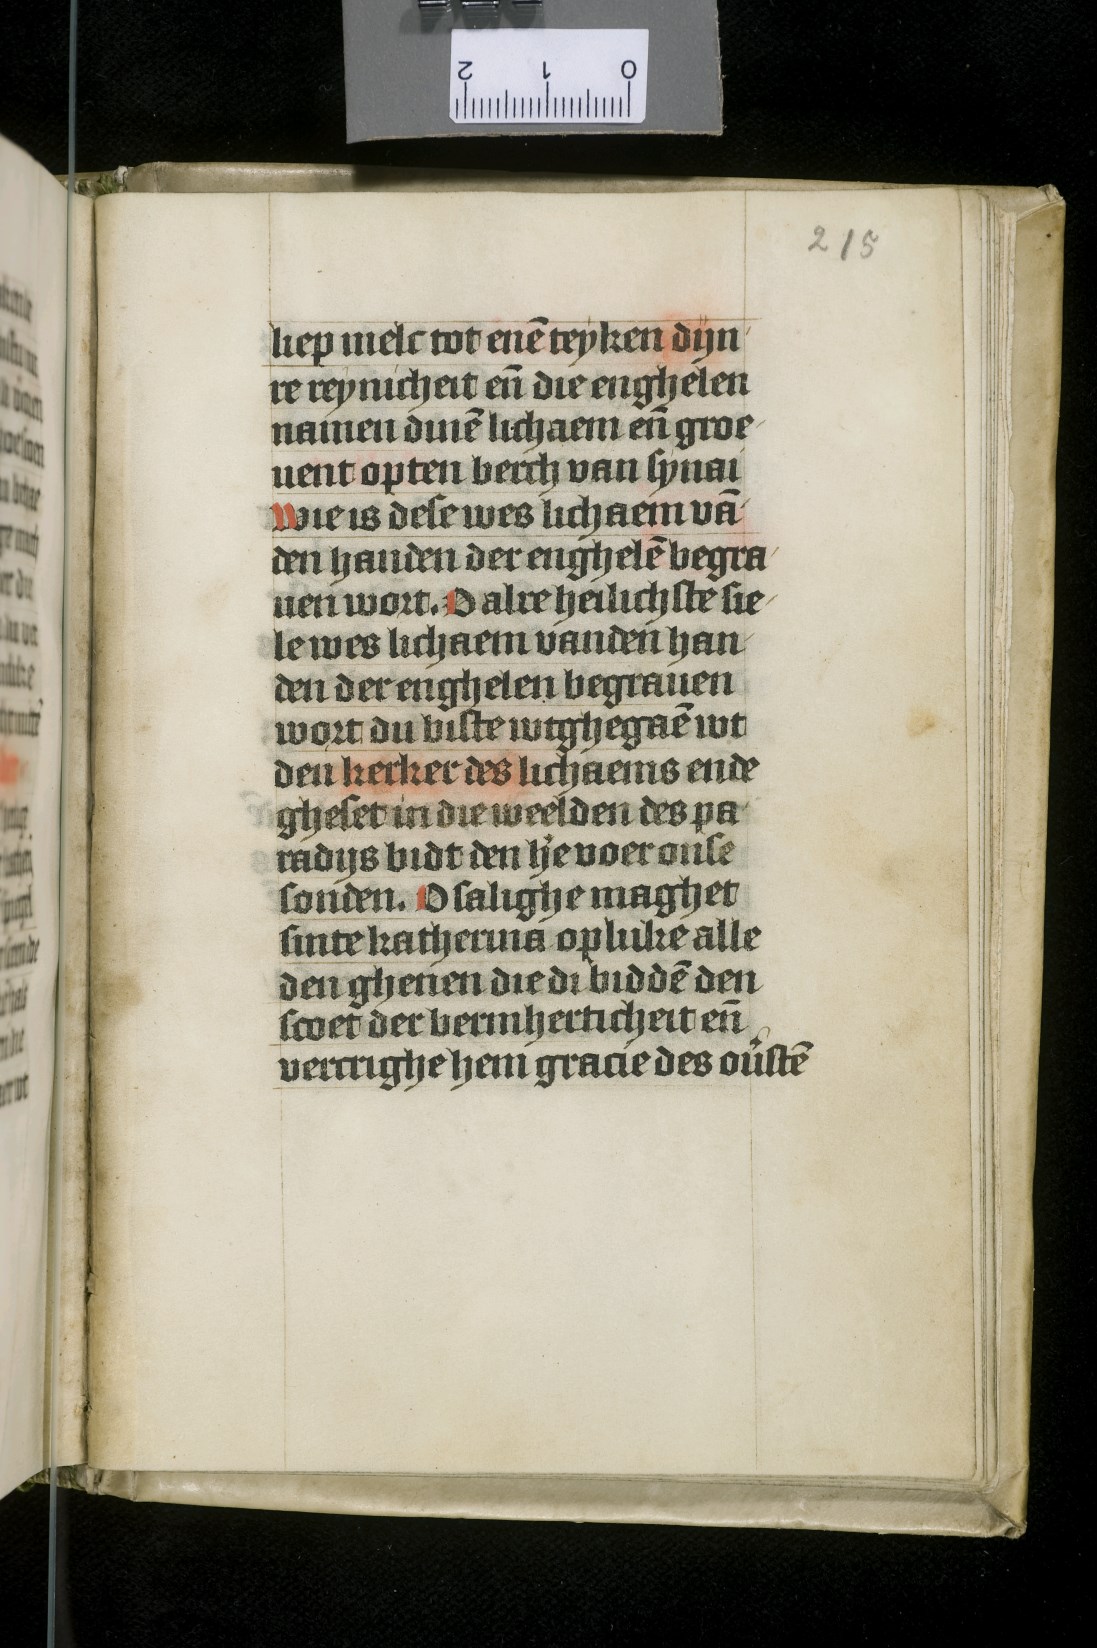 215
liep melc tot enē teyken dijn
re reynicheit en̄ die enghelen
namen dinē lichaem en̄ groe
uent opten berch van synai
Wie is dese wes lichaem vā
den handen der enghelē begra
uen wort. O alre heilichste sie
le wes lichaem vanden han
den der enghelen begrauen
wort du biste wtghegaē wt
den kerker des lichaems ende
gheset in die weelden des pa
radijs bidt den h̄e voer onse
sonden. O salighe maghet
sinte katherina opluke alle
den ghenen die di biddē den
scoet der bermherticheit en̄
vercrighe hem gracie des ou̓stē